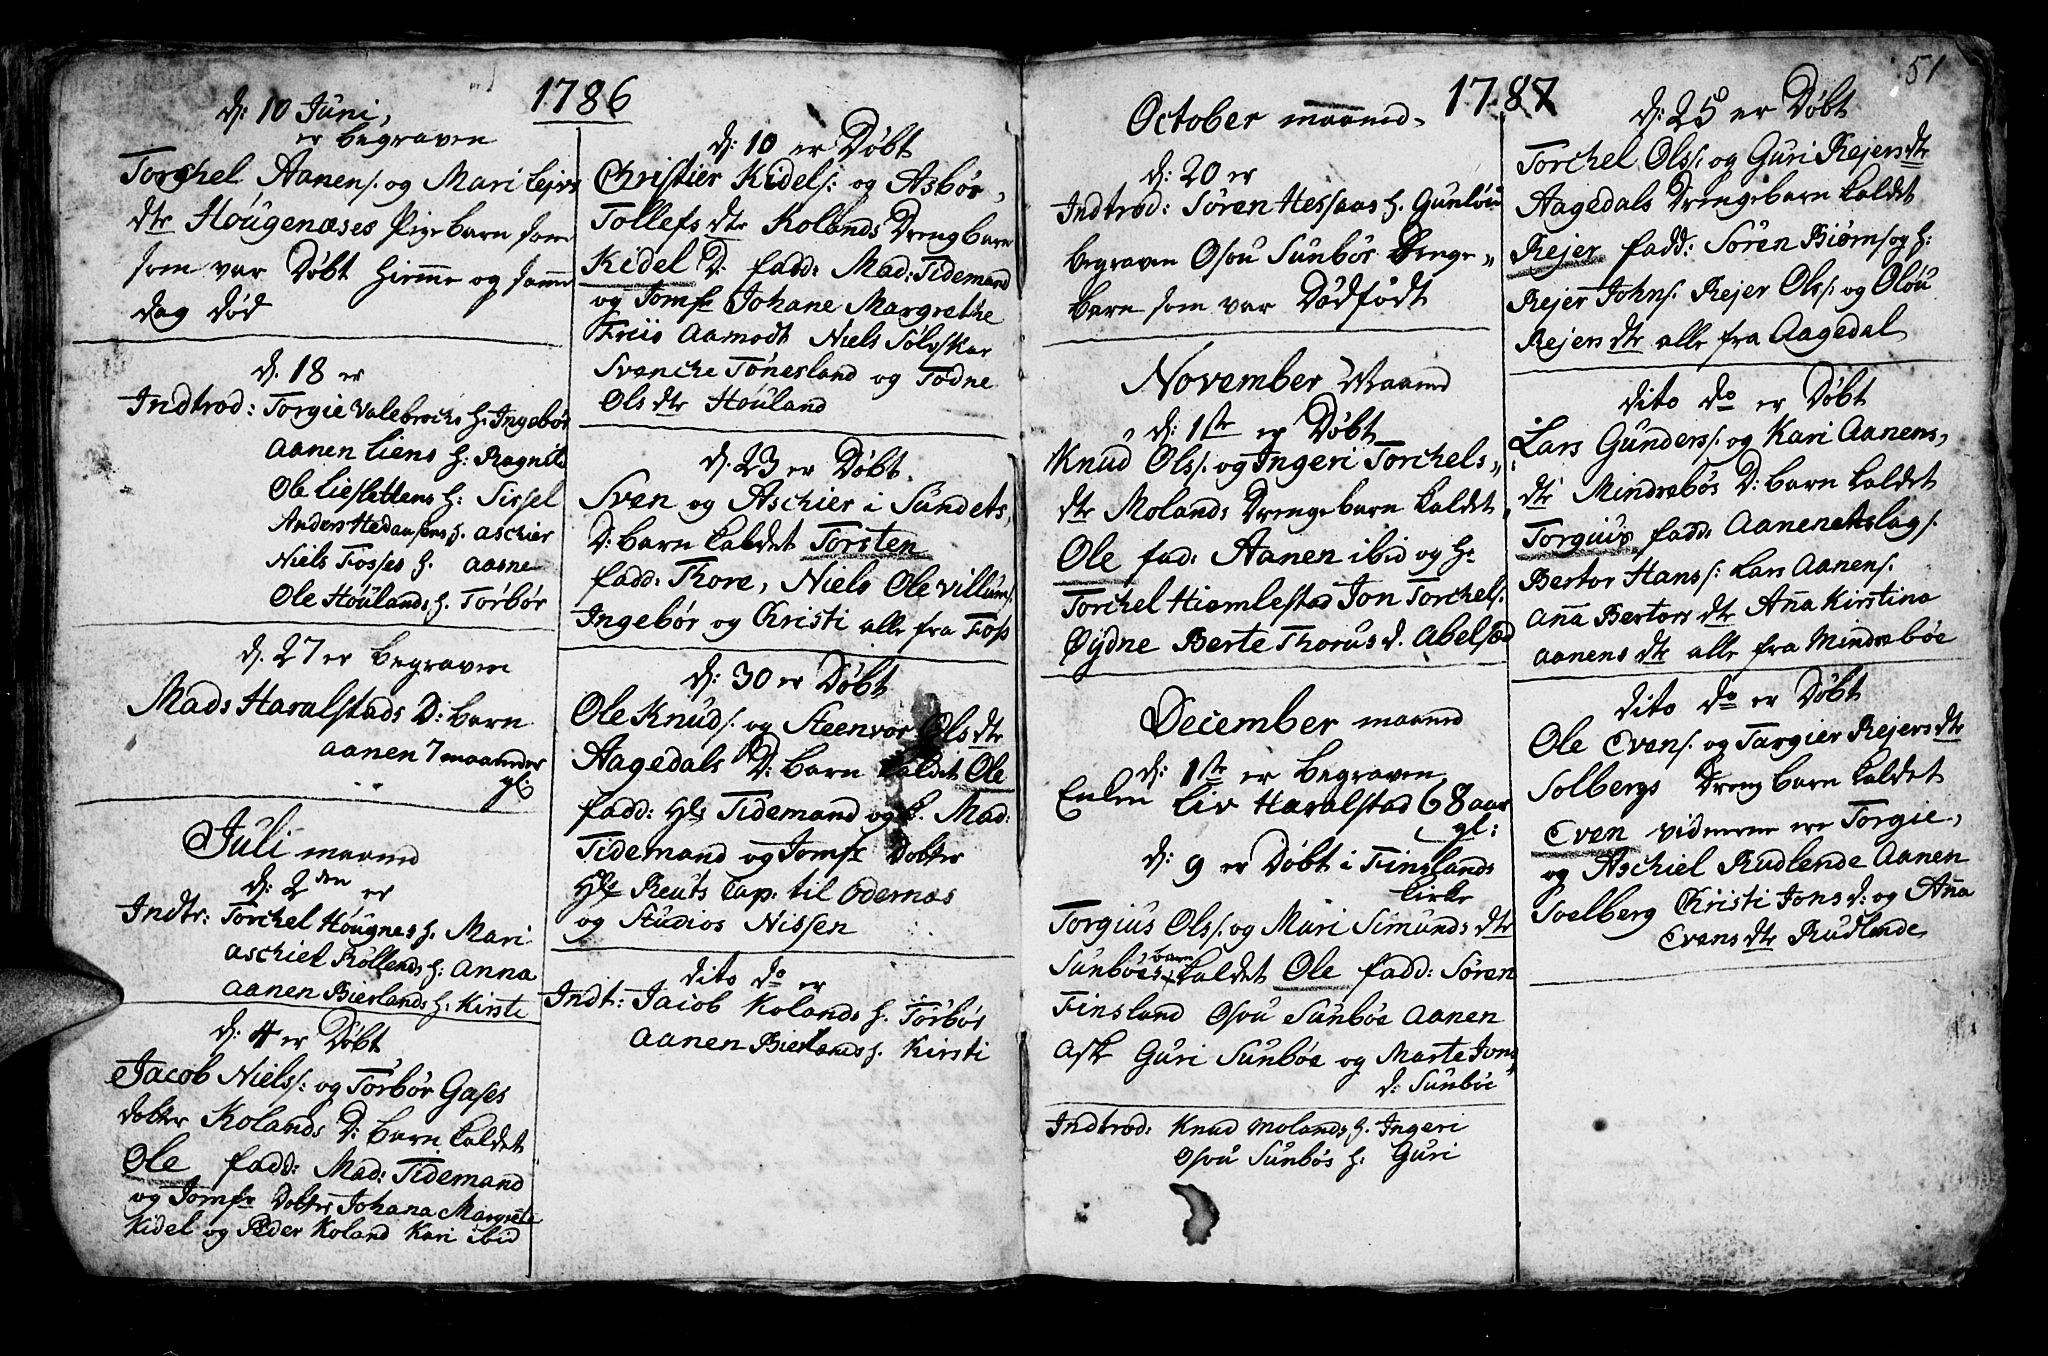 1786
d: 10 Juni,
er begraven
Torchel Aanens: og Mari Lejvs
dtr Hougenæses Pigebarn som
som var Døbt hieme og same
dag død
d. 18 er
Indtrod: Torgie Valebrochs h. Ingebør
Aanen Liens h: Ragnild
Ole Lieslettens h: Sissel
Anders Hedansens h. Aschier
Niels Fosses h. Aasne
Ole Houlands h. Torbør
d. 27 er begraven
Mads Haralstads D: barn
Aanen 7 maaneder
gl
Juli maaned
d: 2den er
Indtr: Torchel Hougnes h. Mari
Aschiel Røllends h: Anna
Aanen Bierlands h: Kirsti
d: 4 er Døbt
Jacob Niels: og Torbør Gases
dotter Kolands D: barn kaldet
Ole fadd: Mad: Tidemand
og Jomfr Dotter Johana Margrete
Kidel og Peder Koland Kari ibid
d: 10 er Døbt
Christier Kidels: og Asbør,
Tollefs dtr Kolands Drengbarn
Kidel D: fadd: Mad: Tidemand
og Jomfr Johane Margrethe
Friis Aamodt Niels Sølvskar
Svenche Tønesland og Todne
Ols dtr Houland
d. 23 er Døbt
Sven og Aschier i Sundets,
D: barn kaldet Torsten
fadd: Thore, Niels Ole Villums:
Ingebør og Christi alle fra Foss
d: 30 er Døbt
Ole Knuds: og Steenvor Ols dtr
Aagedals D: barn kaldet Ole
fadd: Hr Tidemand og h. Mad:
Tidemand og Jomfr Dotter
Hr Reuts Cap: til Odernæs
og Studios Nissen
dito do er
Indt: Jacob Kolands h. Torbør
Aanen Bierlands h. Kirsti
1787
51
October maaned
d: 20 er
Indtrod: Søren Hessaas h. Gunlou
begraven Osou Sunbøs Drenge,,
barn som var Dødfødt
November Maaned
d: 1ste er Døbt
Knud Ols: og Ingeri Torchels,,
dtr Molands Drengebarn kaldet
Ole fad: Aanen ibid og hr
Torchel Hiemlestad Jon Torchels:
Øydne Berte Thorus d. Abelsæd
December maaned
d: 1ste er begraven
Enken Liv Haralstad 68 aar
gl:
d: 9 er Døbt i Finslands
kirke
Torgius Ols: og Mari Simunds dtr
Sunbøes barn kaldet Ole fadd: Søren
Finsland Osou Sunbøe Aanen
Ask Guri Sunbøe og Marte Jons
d: Sunbøe
Indtrod: Knud Molands h. Ingeri
Osou Sunbøs h: Guri
d: 25 er Døbt
Torchel Ols: og Guri Rejers dtr
Aagedals Drengebarn kaldet
Rejer fadd: Søren Biørns og h:
Rejer Johns. Rejer Ols: og Olou
Rejers dtr alle fra Aagedal
dito do er Døbt
Lars Gunders: og Kari Aanens,
dtr Mindrebøs D: barn kaldet
Torgius fadd: Aanen Aslags:
Bertor Hans: Lars Aanens:
Aña Bertors dtr Aña Kirstina
Aanens dtr alle fra Mindrebøe
dito do er Døbt
Ole Evens: og Targier Rejers dtr
Solbergs Dreng barn kaldet
Even vidnerne ere Torgie,
og Aschiel Rudlende Aanen
Soelberg Christi Jons d: og Aña
Evens dtr Rudlende